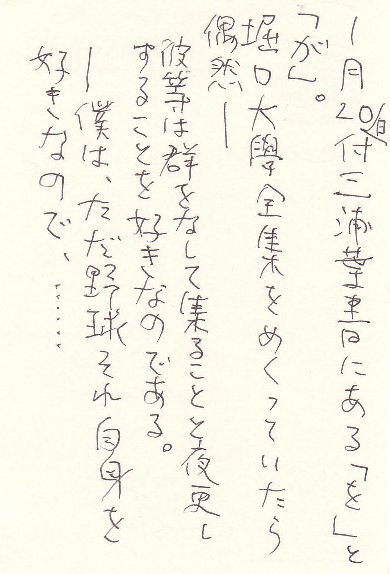 1月20日付三浦葉書にある「を」と
「が」。
堀口大學全集をめくっていたら
偶然ー
彼等は群をなして集ることと夜更し
することを好きなのである。
ー僕は、ただ野球それ自身を
好きなので、……